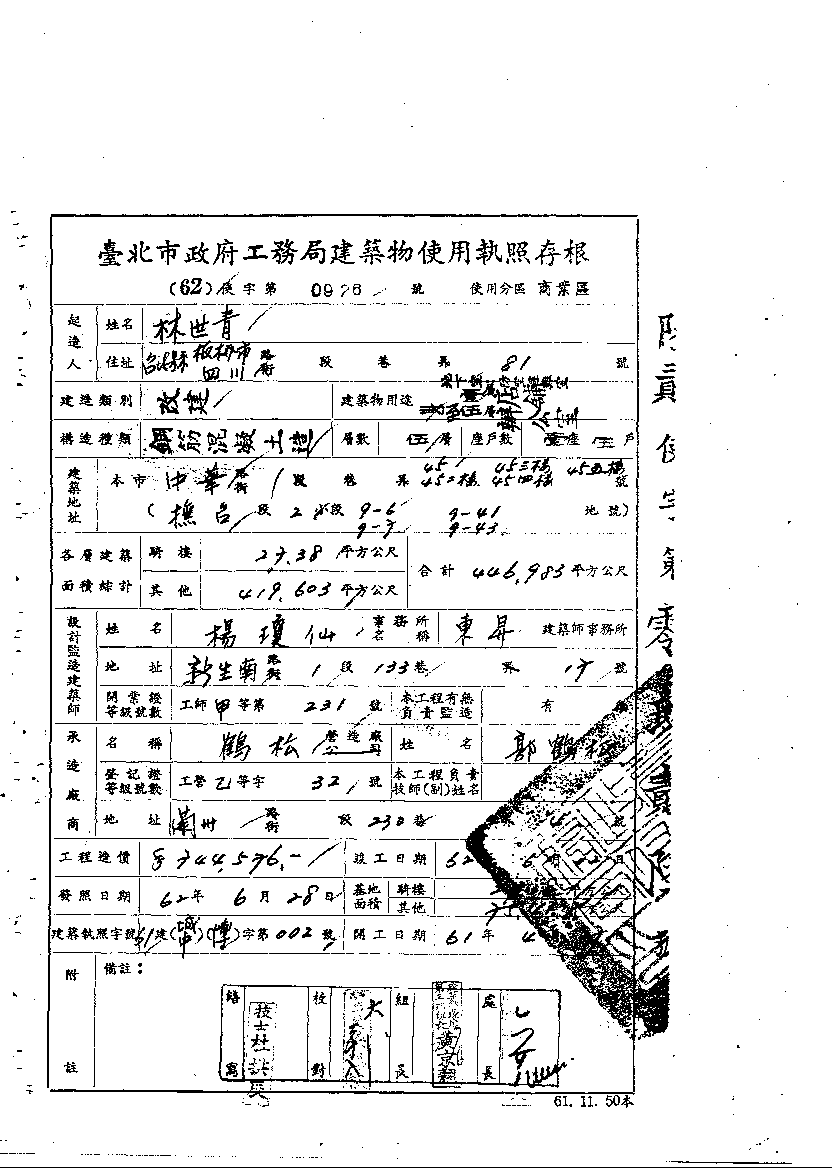 臺北市政府工務局建築物使用執照存根
(62)使字第 0926 號 使用分區 商業區
起造人 姓名 林世青
住址 台北縣 板橋市 四川 路街 段 巷 弄 81 號
建造類別 改建 建築物用途
構造種類 鋼筋混凝土造 層數 伍層 座戶數 壹座 伍戶
建築地址 本市 中華 路街 1 段 巷 弄 45 45二樓 45三樓 45四樓 45五樓 號
( 撫台 段 2 小段 9-6 9-7 9-41 9-43 地號)
各層建築面積綜計 騎樓 27.38 平方公尺 合計 446.983 平方公尺
其他 419.603 平方公尺
設計監造建築師 姓名 楊瓊仙 事務所名稱 東昇 建築師事務所
地址 新生南 路街 1 段 133 巷 弄 17 號
開業證等級號數 工師 甲 等第 231 號 本工程有無負責監造 有
承造廠商 名稱 鶴松 營造廠公司 姓名 郭鶴松
登記證等級號數 工營 乙 等字 32 號 本工程負責技師(副)姓名
地址 蘭州 路街 段 230 巷 弄 4 號
工程造價 $744,576.- 竣工日期 62 年 6 月 22 日
發照日期 62 年 6 月 28 日 基地面積 騎樓 平方公尺
其他 平方公尺
建築執照字號 61 建(城中)( )字第 002 號 開工日期 61 年 4 月 日
附註 備註:
繕寫 技士杜 校對 組長 黃京 處長
61. 11. 50本